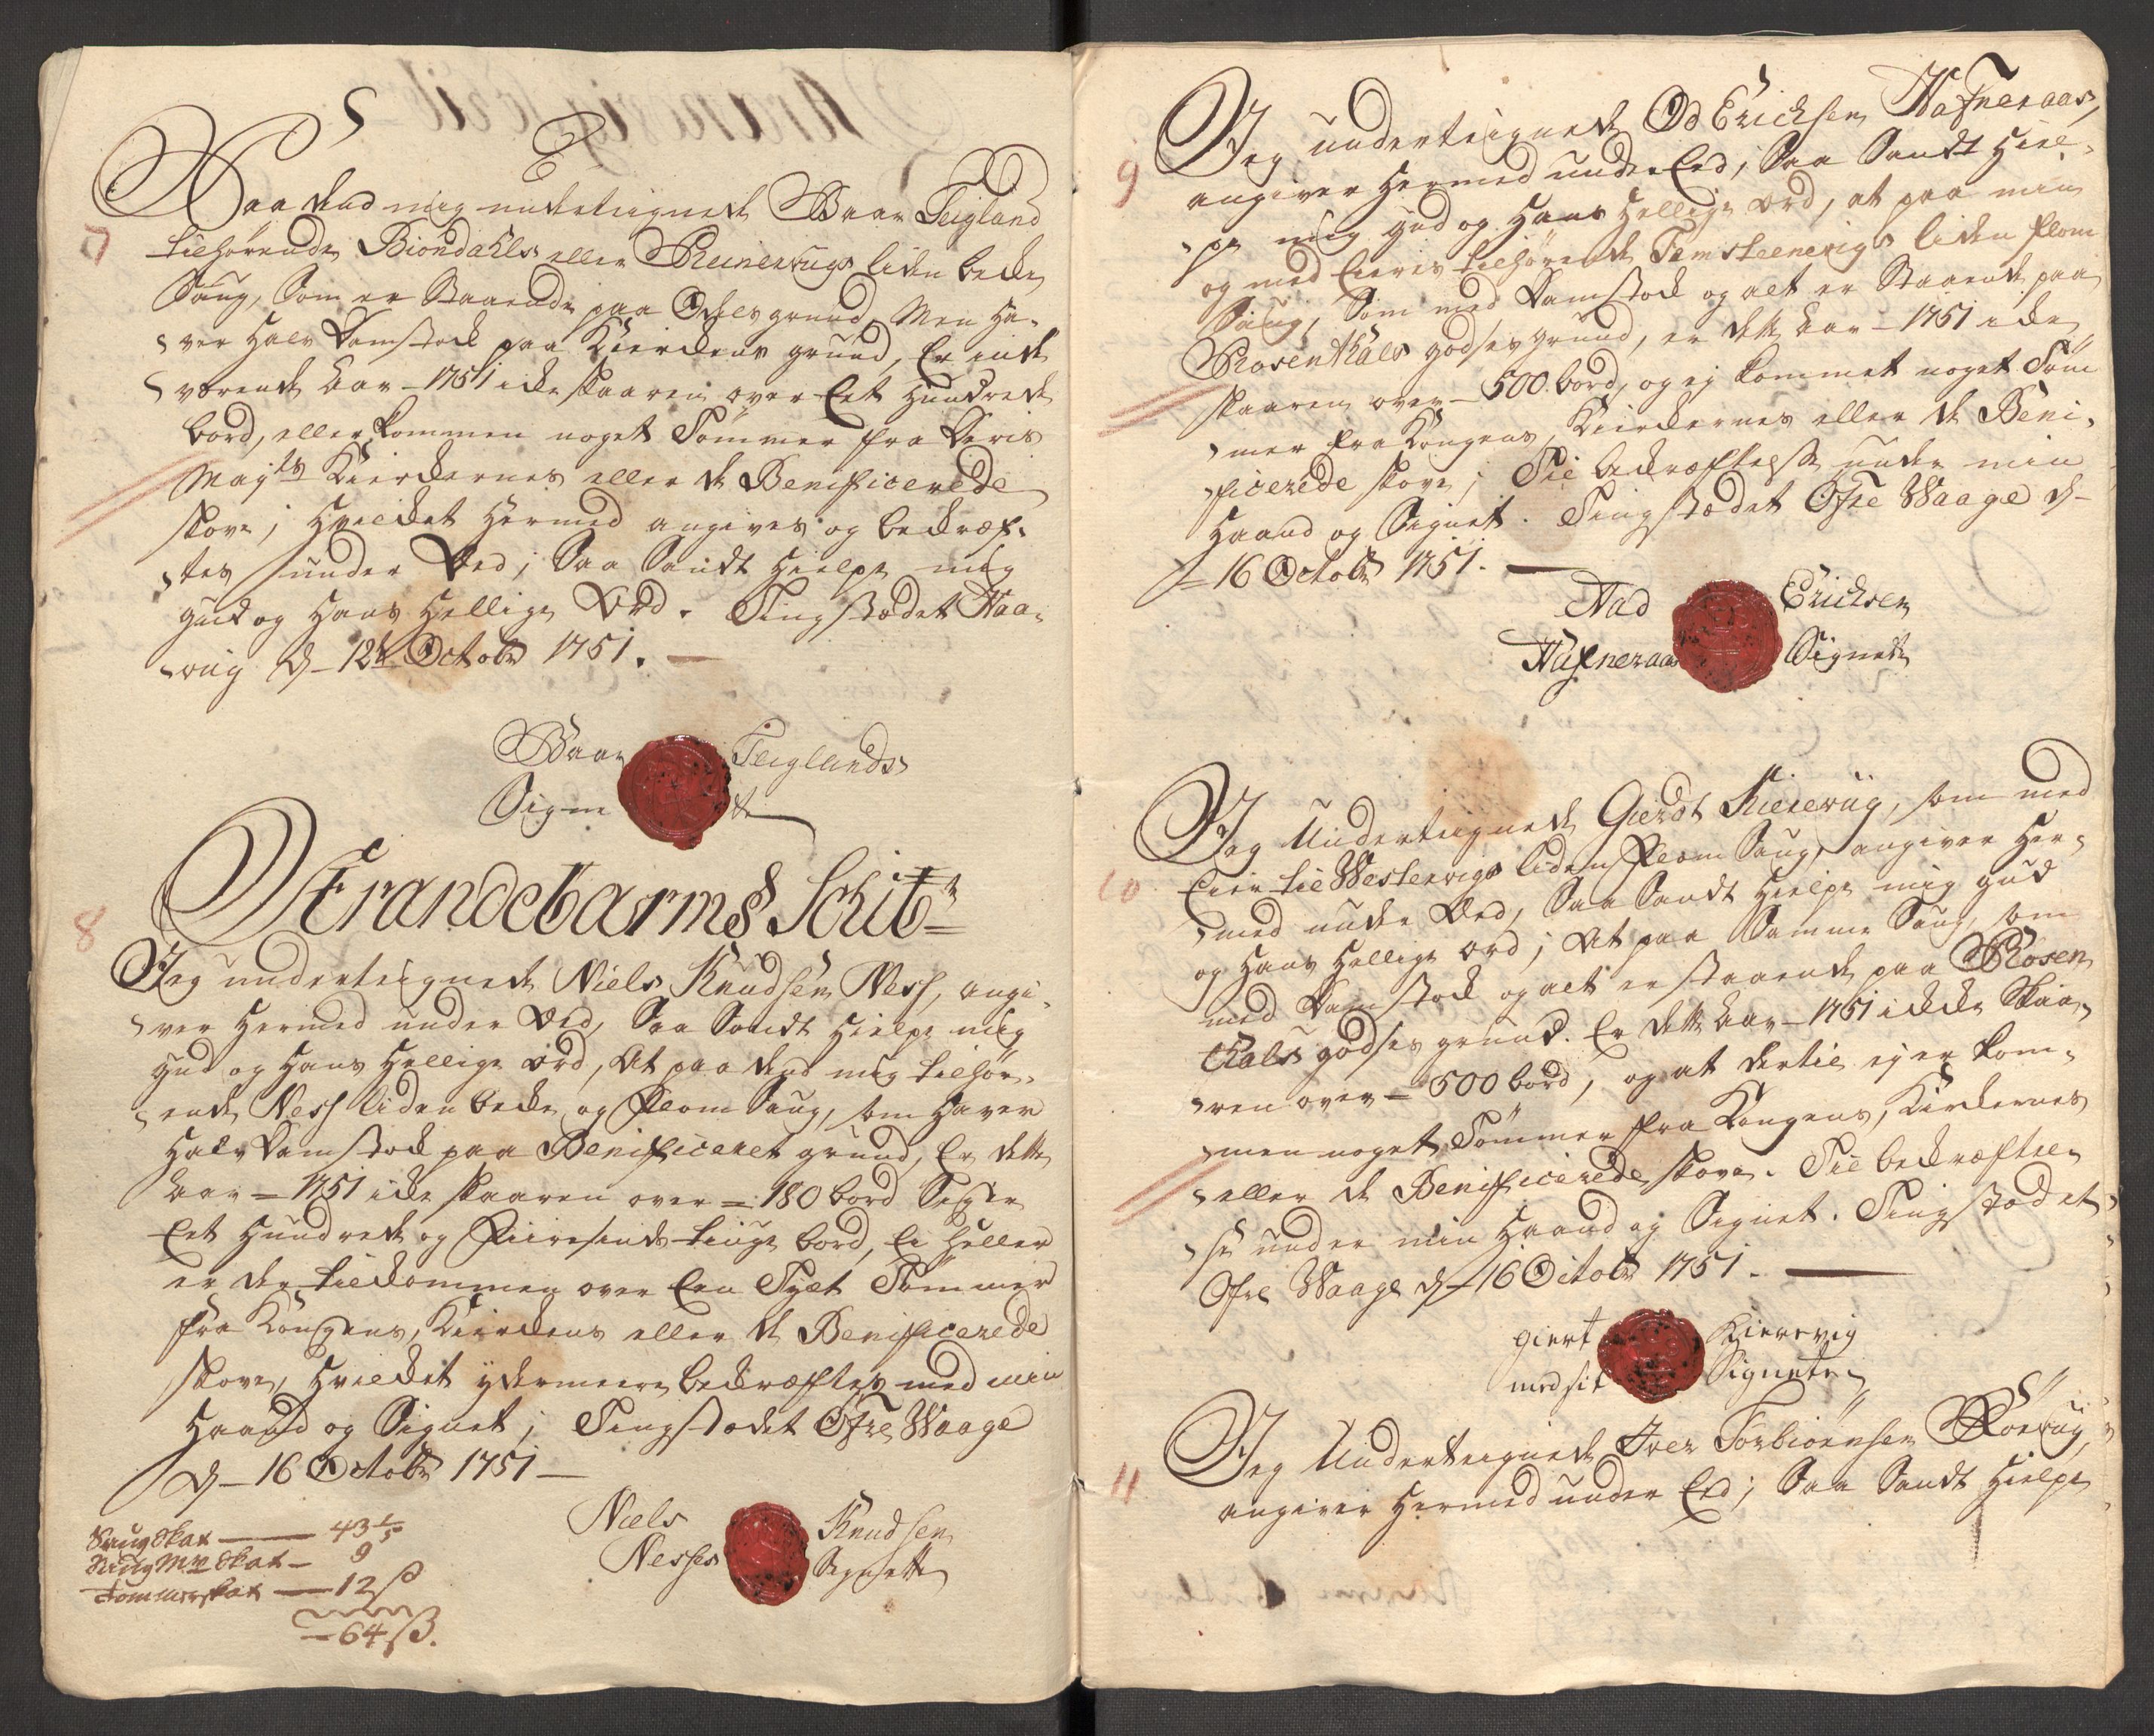 7
Paa dend mig undeteignede Baar Teigland
tilhørende Biondahls eller Reinervugs liden becke
Saug, Som er Staaende paa Odels grund, Men ha-
ver halv Damstock paa Kirckens grund, Er inde
værende Aar - 1751 icke skaaren over Eet Hundrede
bord, eller kommen noget Tømmer fra Deris
Mayts Kirckernes eller de Benificerede
skove; hvilcket hermed angives og bekræf-
tes under Æed, Saa Sandt hielpe mig
gud og hans hellige Ord. Tingstædet Waa-
vüg d - 12te Octobr 1751.
Baar Teiglands
Signete
Strandebarms Schibr
8
Jeg underteignede Niels Knudsen Ness, angi-
ver hermed under Æd, Saa Sandt hielpe mig
gud og hans hellige ord, At paa dend mig tilhør-
ende Ness liden becke og Flom Saug, som haver
halv Damstock paa Benificeret grund, Er dette
Aar = 1751 icke skaaren over = 180 bord Siger
Eet hundrede og Fiiresinds tiuge bord, Ei heller
er der tilkommen over Een Tylt Tømmer
fra Kongens, Kirckens eller de Benificerede
skove, hvilcket ydermeere bekræftes med min
Haand og Signet; Tingstædet Ofre Waage
d - 16 Octobr 1751 —
Niels Knudsen
Nesses Signette
Saug Skat — 43 1/5
Saug Mr Skat — 9
Tommerskat — 12 ß
— 64 ß.
9
Jeg underteignede Od Erichsen Hafneraas,
angiver hermed under Eed, Saa Sandt hiel-
pe mig gud og hans hellige ord, at paa min
og med Eieris tilhørende Temsteenevigs liden flom
Saug, Som med Damstock og alt er Staaende paa
Rosenthals godses grund, er dette Aar - 1751 icke
skaaren over - 500. bord, og ej kommet noget Tøm
mer fra Kongens, Kirckernes eller de Beni-
ficerede skove; Til bekræftelse under min
Haand og Signet. Tingstædet Ofre Waage d -
16 Octobr 1751. —
Aad Erichsen
Hafneraas Signete
10
Jeg Underteignede Gierdt Kierevüg, som med
Eier til Westervigs liden Flom Saug, angiver her-
med under Æed, Saa Sandt hielpe mig gud
og hans hellige ord; At paa Samme Saug, som
med Damstock og alt er staaende paa Rosen
thals godses grund. Er dette Aar - 1751 icke Skaa-
ren over = 500 bord, og at dertil ej er kom-
men noget Tømmer fra Kongens, Kirckernes
eller de Benificerede skove. Til bekræftel-
se under min Haand og Signet. Tingstædet
Ofre Waage d - 16 Octobr 1751. —
giert Kierevig
med sit Signete
11
Jeg Underteignede Iver Torbiørnsen Røevüg,
angiver hermed under Eed; Saa Sandt hielpe